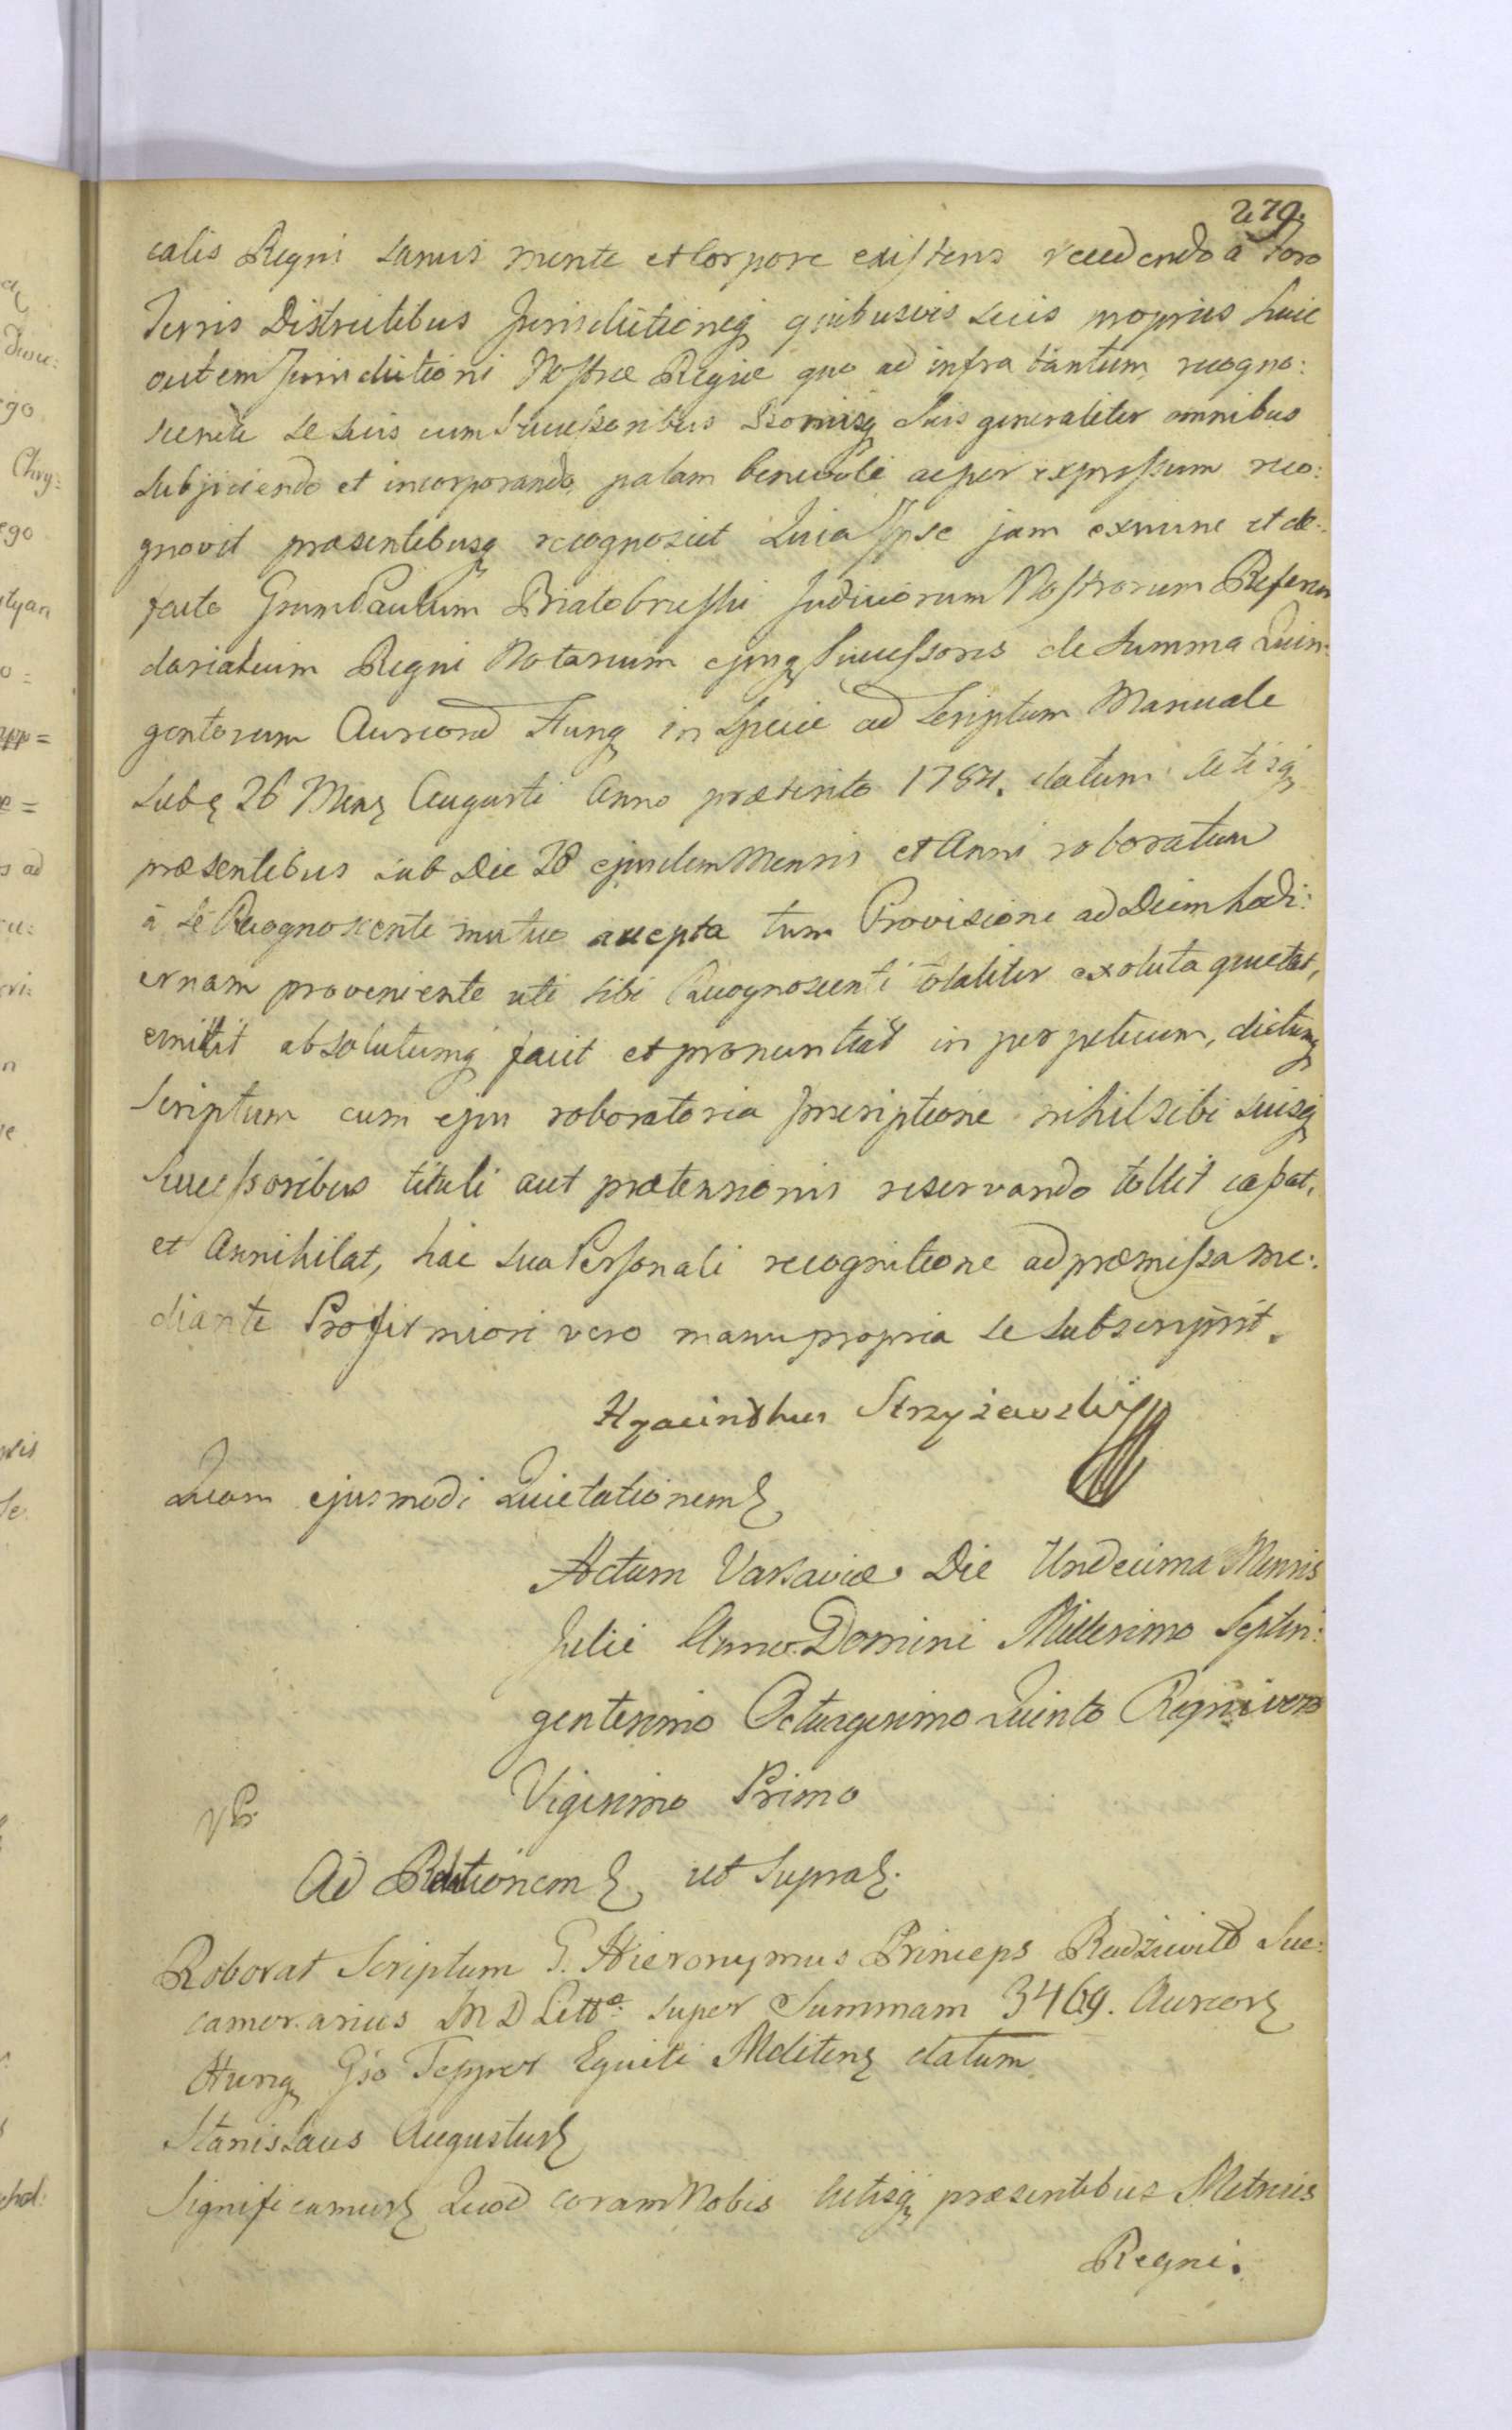 279.
calis Regni sanus mente et Corpore existens recedendo a Foro
Terris Districtibus Jurisdictioneq quibusvis suis propriis huic
autem Jurisdictioni Nostræ Regiæ quo ad infra tantum recogno:
scenda se suis cum Successoribus Bonisq suis generaliter omnibus
subjiciendo et incorporando, palam benevole ac per expressum reco:
gnovit præsentibusq recognoscit Quia Ipse jam exnunc et de
facto Grum Paulum Białobrzeski Judiciorum Nostrorum Referen
dariatuum Regni Notarium ejusq Successores de Summa Quin:
gentorum Aureorum Hung in specie ad Scriptum Manuale
sub 26 Mens Augusti Anno præterito 1784. datum Actisq
præsentibus sub Die 28 ejusdem Mensis et Anni roboratum
à se Recognoscente mutuo accepta tum Provisione ad Diem hodi:
ernam proveniente uti sibi Recognoscenti totaliter exoluta quietat,
emittit absolutumq facit et pronuntiat in perpetuum, dictumq
Scriptum cum ejus roboratoria Inscriptione nihil sibi suisq
Successoribus tituli aut prætensionis reservando tollit cassat,
et Annihilat, hac sua Personali recognitione ad præmissa me:
diante Profit miori vero manu propria se subscripsit.
Hyacinthus Strzyżewski
Quam ejusmodi Quietationem
Actum Varsaviæ Die Undecima Mensis
Julii Anno Domini Millesimo Septin:
gentesimo Octuagesimo Quinto Regni vero
Vigesimo Primo
Ad Relationem ut supra.
Roborat Scriptum G. Hieronymus Princeps Radziwiłł Suc:
camerarius M D Litt: super Summam 3469. Aureor
Hung Gso Tepper Equiti Melitens datum
Stanislaus Augustus
Significamus Quod coram Nobis Actisq præsentibus Metrices
Regni.